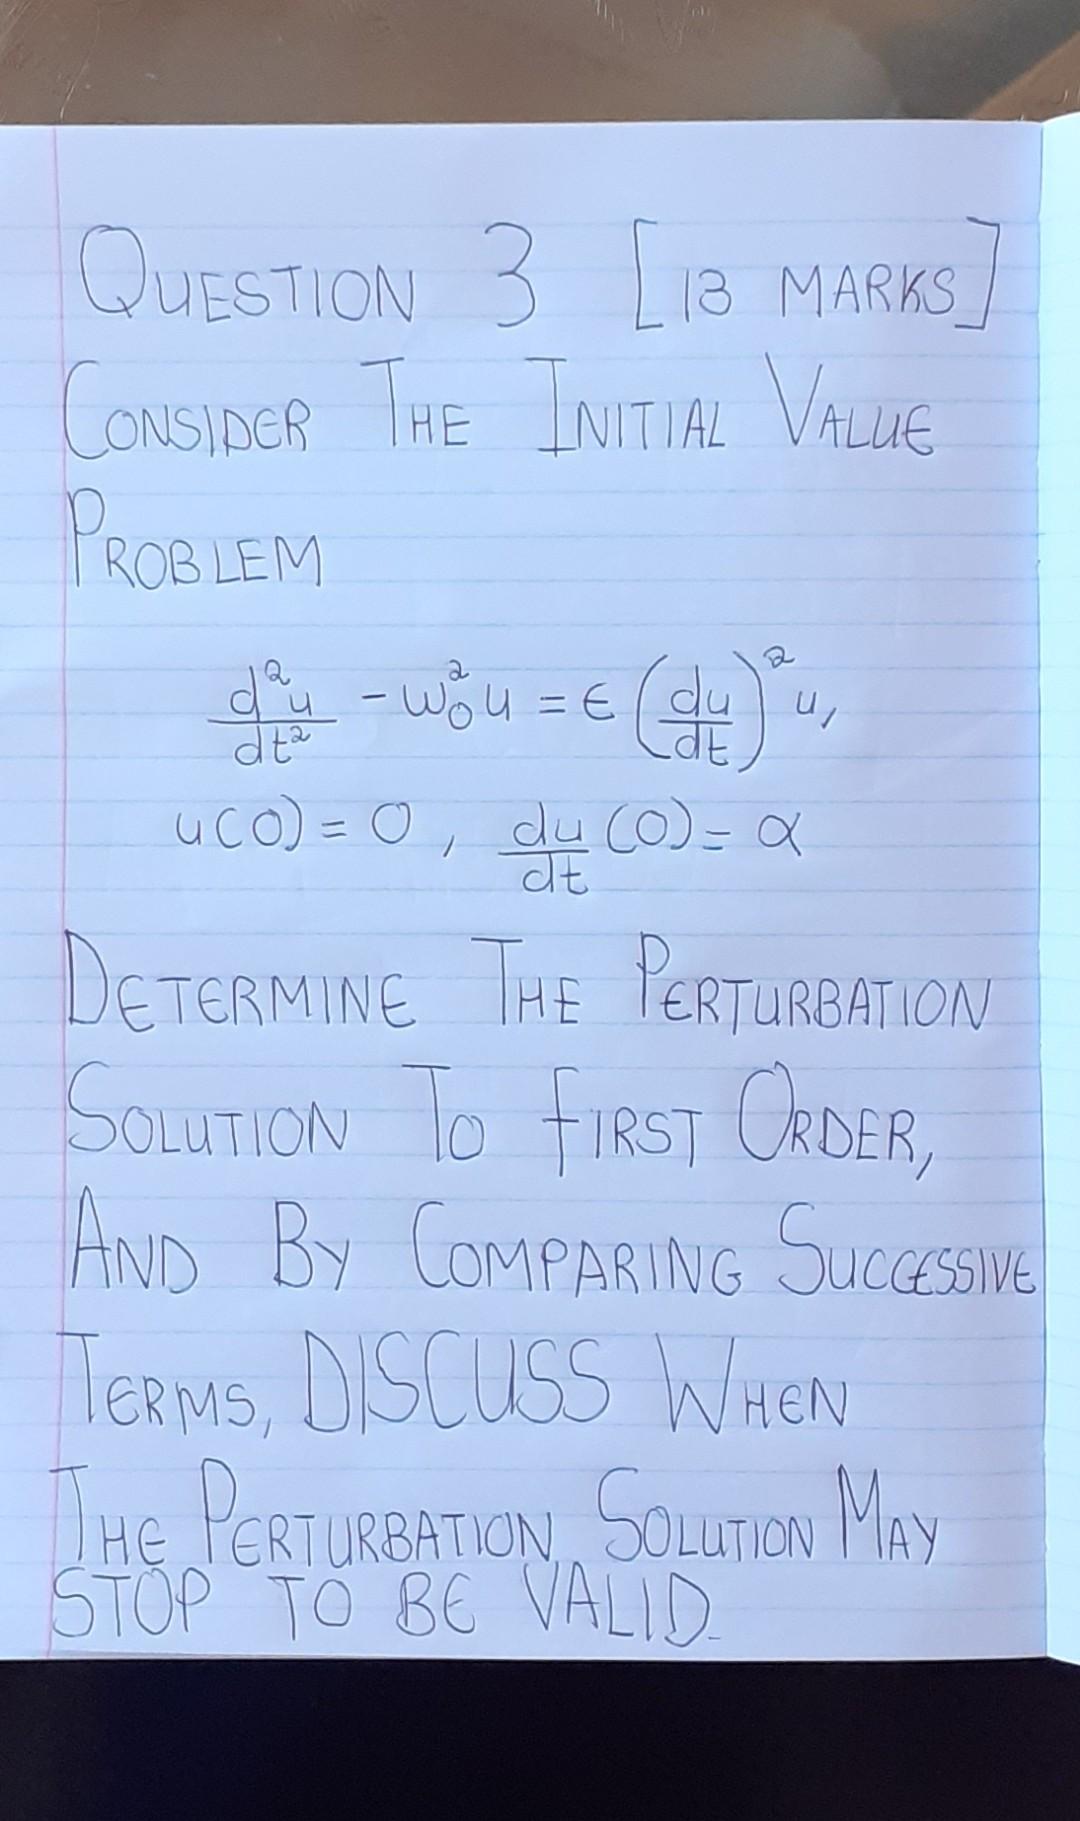 QUESTION 3 [13 MARKS]
CONSIDER THE INITIAL VALUE
PROBLEM
d²u/dt² - ω₀²u = ϵ(du/dt)²u,
u(0) = 0, du/dt(0) = α
DETERMINE THE PERTURBATION
SOLUTION TO FIRST ORDER,
AND BY COMPARING SUCCESSIVE
TERMS, DISCUSS WHEN
THE PERTURBATION SOLUTION MAY
STOP TO BE VALID.